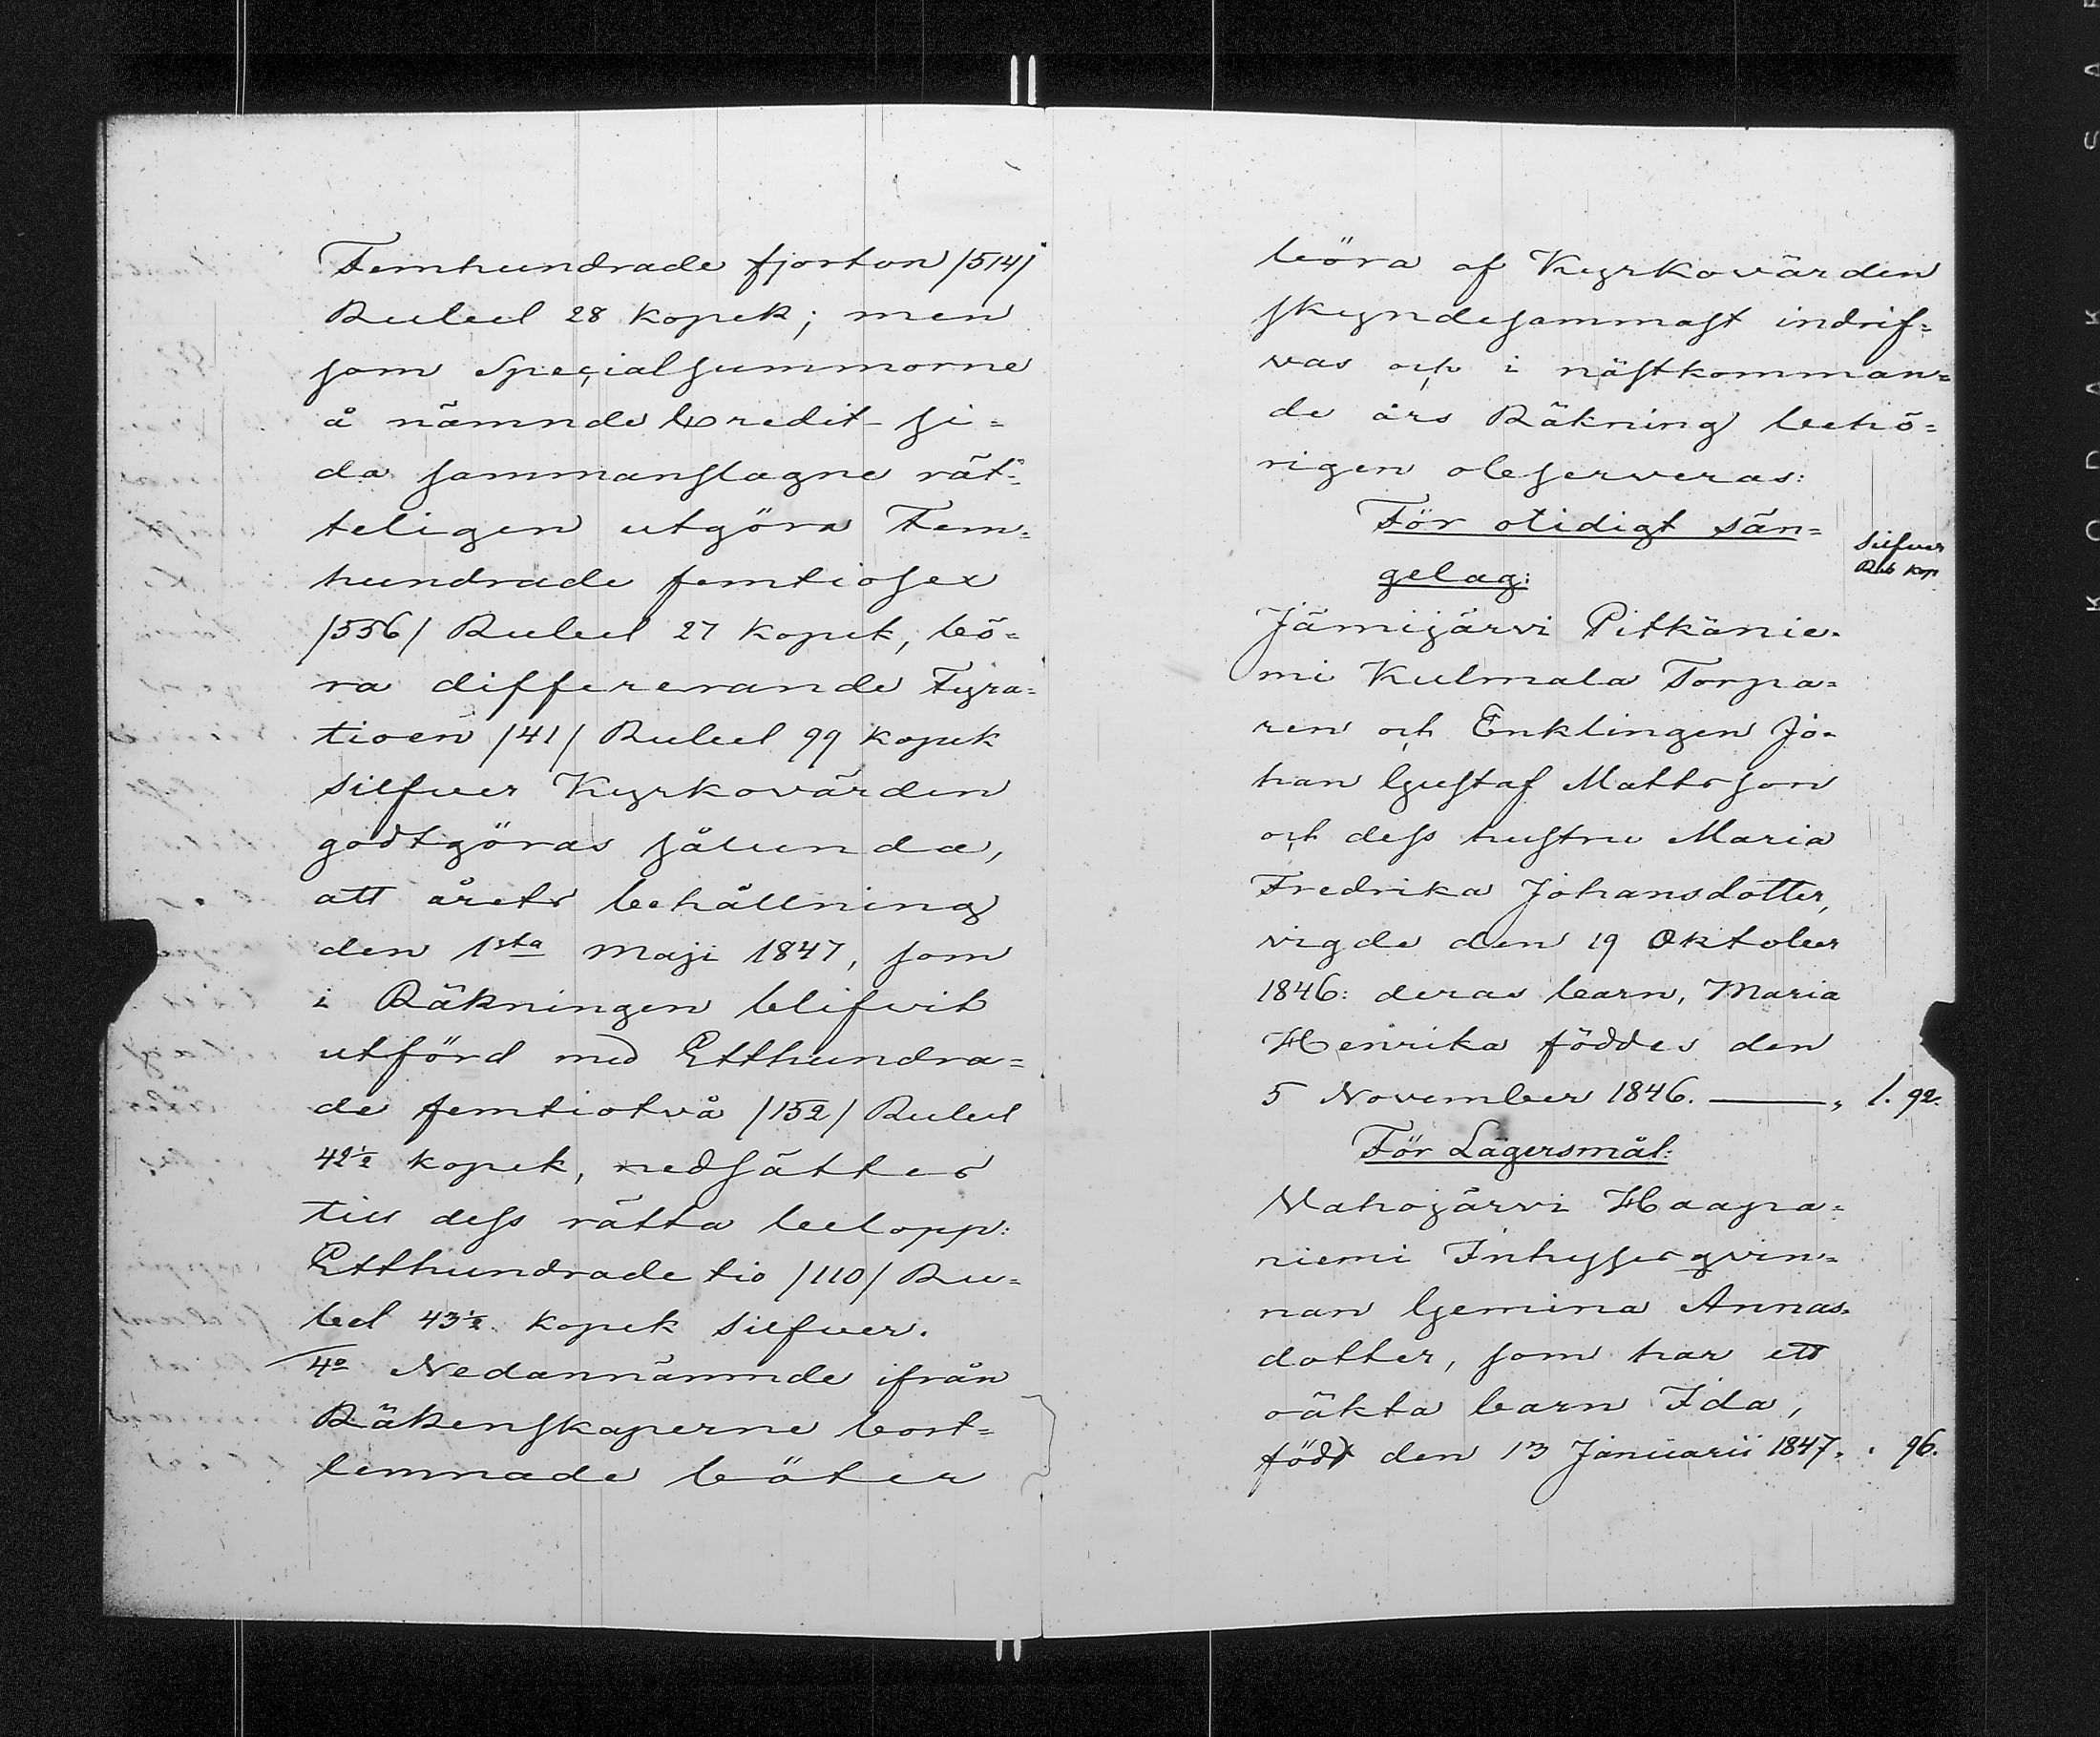 Femhundrade fjorton /514/
Rubel 28 kopek; men
som Specialsummorne
å nämnde Credit-si=
da sammanslagne rät=
teligen utgöra Fem=
hundrade femtiosex
/556/ Rubel 27 kopek, bö=
ra differerande Fyra=
tioen /41/ Rubel 99 kopek
silfver Kyrkovärden
godtgöras sålunda,
att årets behållning
den 1sta Maji 1847, som
i Räkningen blifvit
utförd med Etthundra=
de femtiotvå /152/ Rubel
42½ kopek, nedsättes
till dess rätta belopp:
Etthundrade tio /110/ Ru=
bel 43½ kopek silfver.
4o Nedannämnde ifrån
Räkenskaperne bort=
lemnade böter
böra af Kyrkovärden
skyndesammast indrif=
vas och i nästkomman=
de års Räkning behö=
rigen observeras:
För otidigt sän=
gelag:
Silfver
Rub kop
Jämijärvi Pitkänie=
mi Kulmala Torpa=
ren och Enklingen Jo=
han Gustaf Mattsson
och dess hustru Maria
Fredrika Johansdotter,
vigde den 19 Oktober
1846: deras barn, Maria
Henrika föddes den
5 November 1846. ——— 1. 92.
För Lägersmål:
Vahojärvi Haapa=
niemi Inhysesqvin=
nan Gemina Annas=
dotter, som har ett
oäkta barn Ida,
född den 13 Januarii 1847. . 96.
KODAK SAF